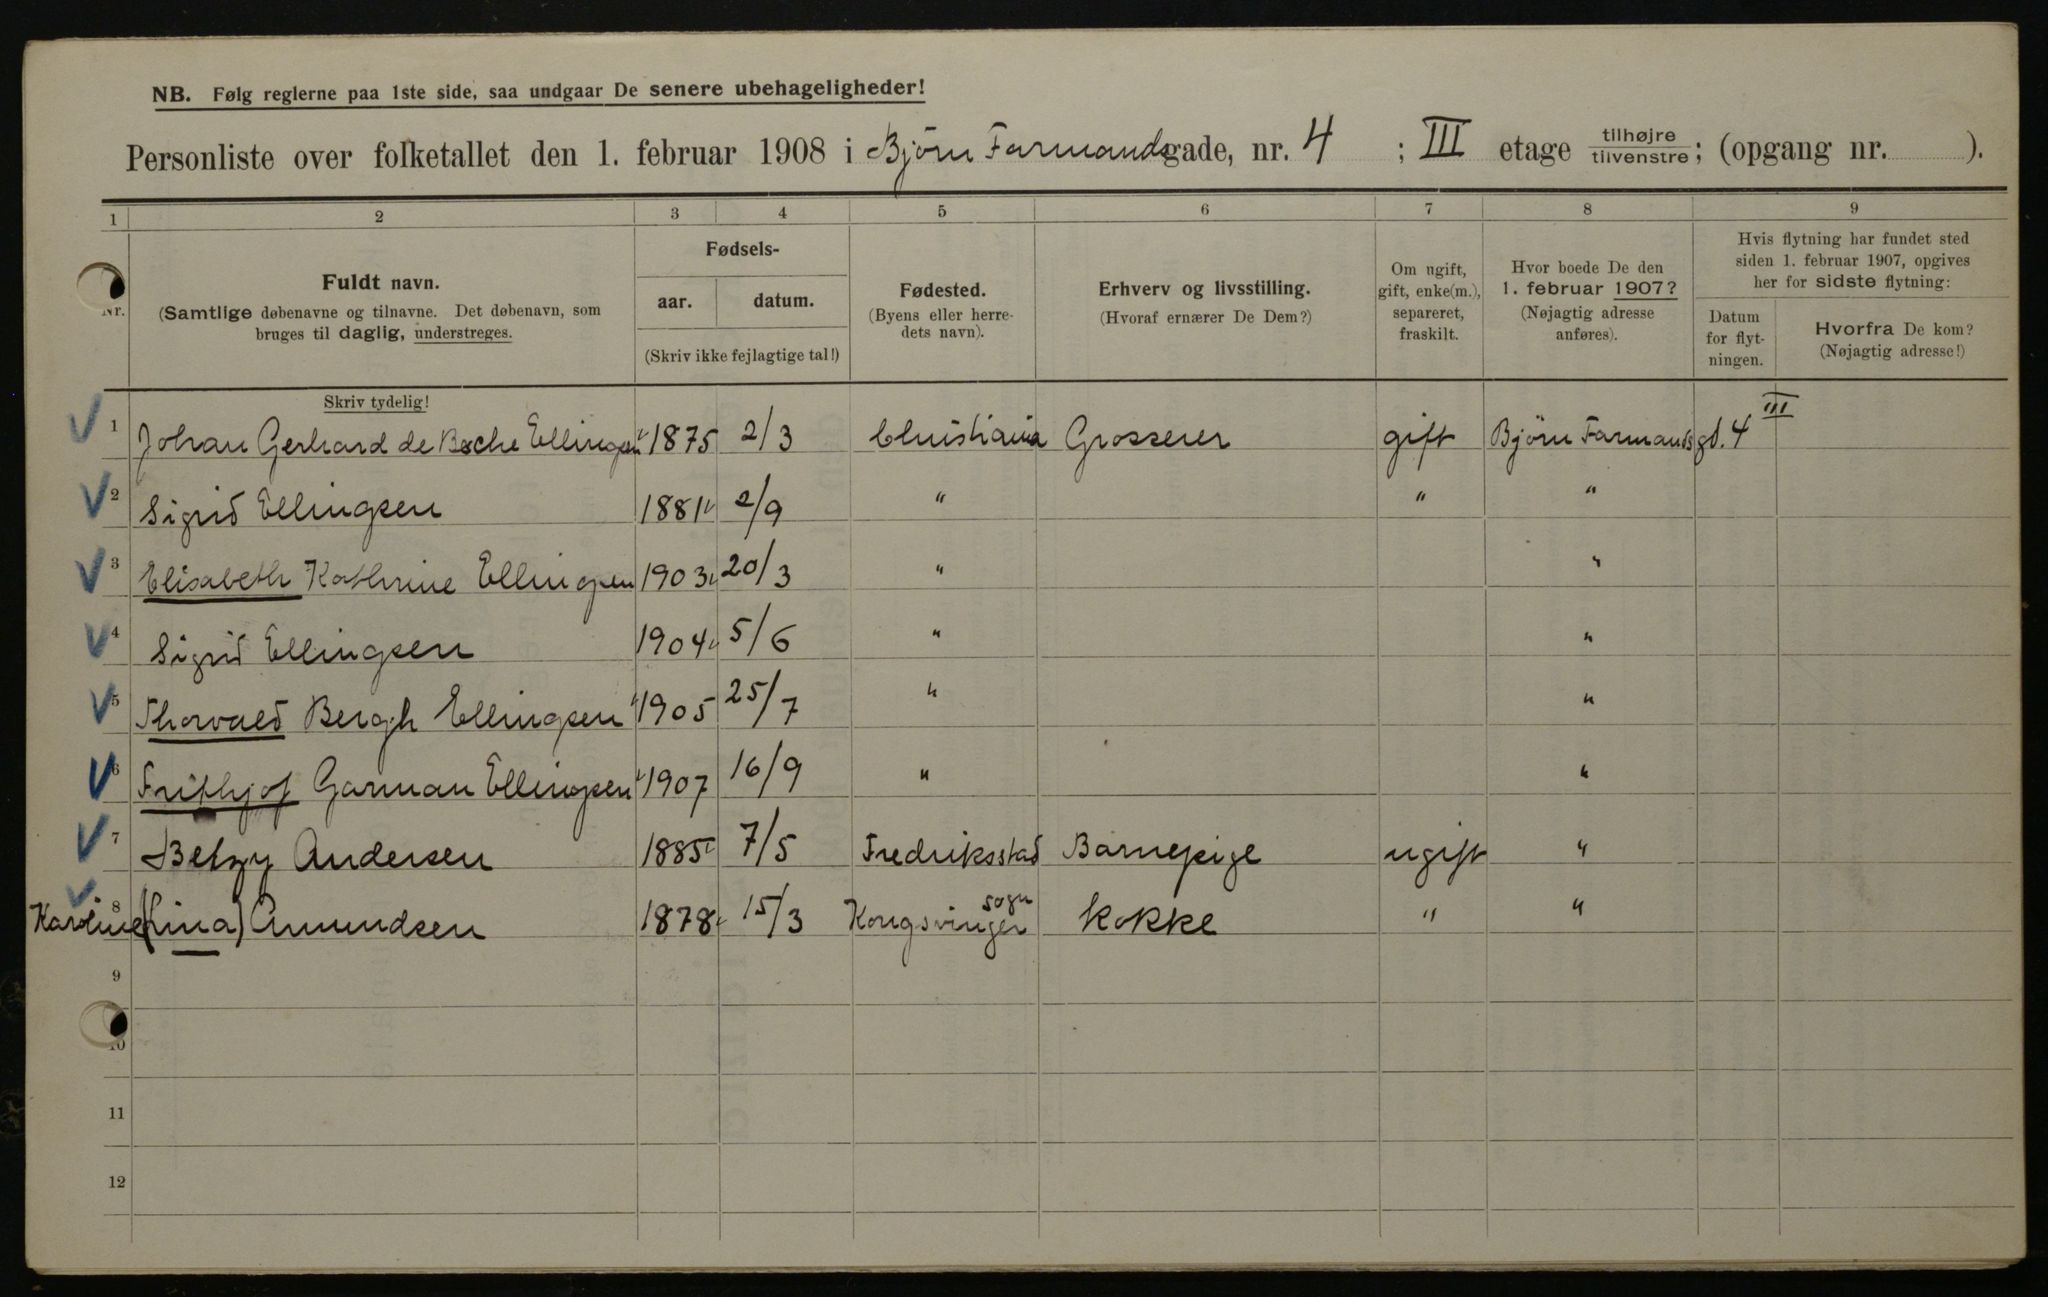 NB. Følg reglerne paa 1ste side, saa undgaar De senere ubehageligheder!
Personliste over folketallet den 1. februar 1908 i Björn Farmandsgade, nr. 4 ; III etage tilhøjre / tilvenstre; (opgang nr. ).
1 2 3 4 5 6 7 8 9
Nr.
Fuldt navn.
(Samtlige døbenavne og tilnavne. Det døbenavn, som
bruges til daglig, understreges.
Fødsels-
aar. datum.
(Skriv ikke fejlagtige tal!)
Fødested.
(Byens eller herre-
dets navn).
Erhverv og livsstilling.
(Hvoraf ernærer De Dem?)
Om ugift,
gift, enke(m.),
separeret,
fraskilt.
Hvor boede De den
1. februar 1907?
(Nøjagtig adresse
anføres).
Hvis flytning har fundet sted
siden 1. februar 1907, opgives
her for sidste flytning:
Datum
for flyt-
ningen.
Hvorfra De kom?
(Nøjagtig adresse!)
Skriv tydelig!
1 Johan Gerhard de Besche Ellingsen 1875 2/3 Christiania Grosserer gift Björn Farmandsgd. 4 III
2 Sigrid Ellingsen 1881 2/9 " " "
3 Elisabeth Kathrine Ellingsen 1903 20/3 " "
4 Sigrid Ellingsen 1904 5/6 " "
5 Thorvald Bergh Ellingsen 1905 25/7 " "
6 Frithjof Garman Ellingsen 1907 16/9 " "
7 Betzy Andersen 1885 7/5 Fredriksstad Barnepige ugift "
8 Karoline (Lina) Amundsen 1878 15/3 Kongsvinger sogn Kokke " "
9
10
11
12